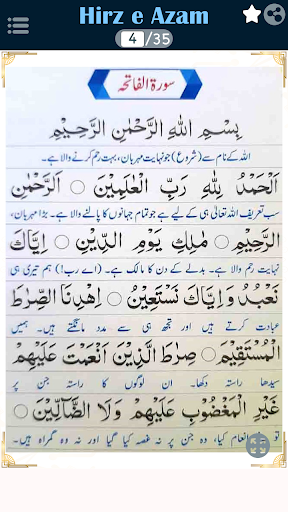 Hirz e Azam
4 /35
سورة الفاتحہ
بِسْمِ اللّٰهِ الرَّحْمٰنِ الرَّحِيْمِ
اللہ کے نام سے (شروع) جو نہایت مہربان، بہت رحم کرنے والا ہے۔
اَلْحَمْدُ لِلّٰهِ رَبِّ الْعٰلَمِيْنَ ○ الرَّحْمٰنِ
سب تعریف اللہ تعالٰی ہی کے لیے ہے جو تمام جہانوں کا پالنے والا ہے۔ بڑا مہربان،
الرَّحِيْمِ ○ مٰلِكِ يَوْمِ الدِّيْنِ ○ اِيَّاكَ
نہایت رحم والا ہے۔ بدلے کے دن کا مالک ہے۔ (اے رب!) ہم تیری ہی
نَعْبُدُ وَ اِيَّاكَ نَسْتَعِيْنُ ○ اِهْدِنَا الصِّرَاطَ
عبادت کرتے ہیں اور تجھ ہی سے مدد مانگتے ہیں۔ ہمیں
الْمُسْتَقِيْمَ ○ صِرَاطَ الَّذِيْنَ اَنْعَمْتَ عَلَيْهِمْ
سیدھا راستہ دکھا۔ ان لوگوں کا راستہ جن پر
غَيْرِ الْمَغْضُوْبِ عَلَيْهِمْ وَلَا الضَّآلِّيْنَ ○
تو نے انعام کیا، وہ جن پر نہ غصہ کیا گیا اور نہ وہ گمراہ ہیں۔